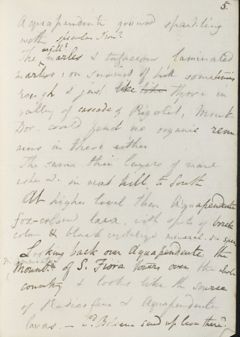 5.
Aquapendente ground sparkling
with specular Iron?
The marls & tufaceous laminated
marls: on summit of hill sometimes
rough & just like those in
valley of cascade of Rigolet, Mont
Dor. could find no organic rem
ains in these either
The same thin layers of more
in next hill, to South
At higher level than Aquapendente
fox-colour lava, with spots of brick
colour & black crystals
Looking back over Aquapendente the
mount of S. Fiora towers over the whole
country & looks like the source
of Radicofani & Aquapendente
lavas. —